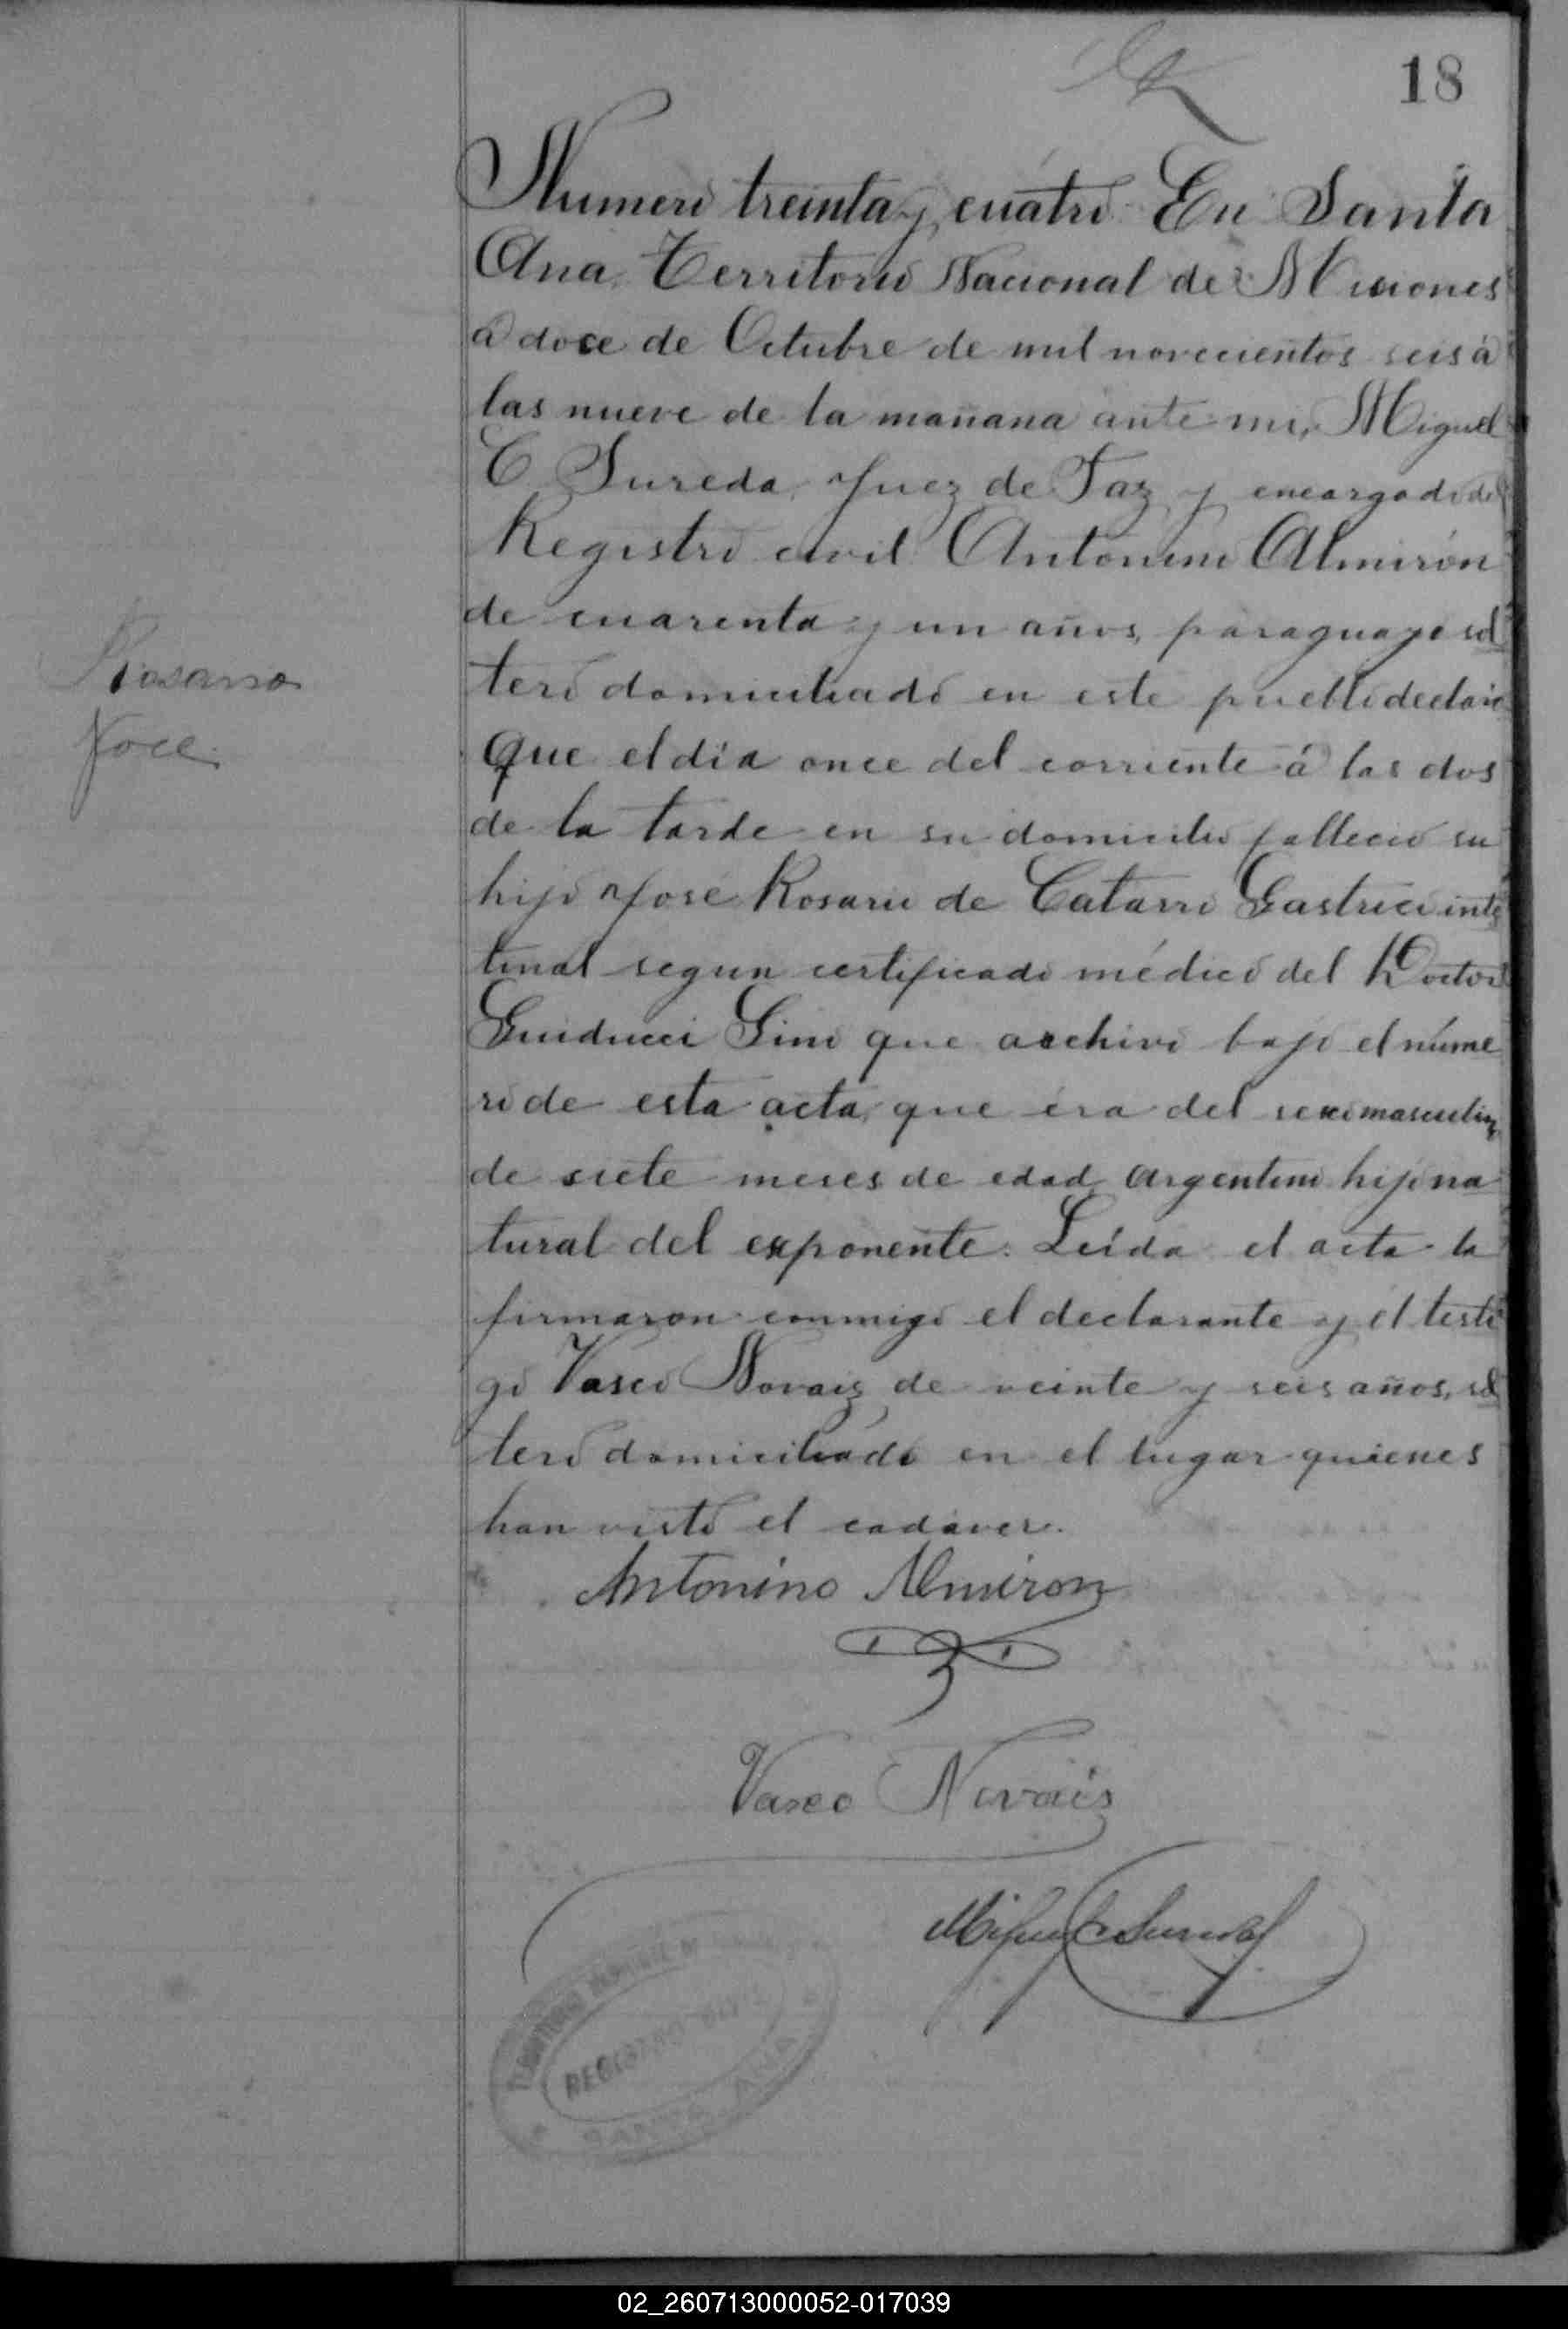 18
Numero treinta y cuatro En Santa
Ana, Territorio Nacional de Misiones
á doce de Octubre de mil novecientos seis á
las nueve de la mañana ante mi, Miguel
C Sureda, Juez de Paz y encargado del
Registro civil Antonino Almirón
de cuarenta y un años, paraguayo sol
tero domiciliado en este pueblo declaró
Que el día once del corriente á las dos
de la tarde en su domicilio falleció su
hijo José Rosario de Catarro Gastrico intes
tinal segun certificado médico del Doctor
Guiducci Gino que archivo bajo el núme
ro de esta acta, que éra del sexo masculino
de siete meses de edad, argentino hijo na
tural del exponente. Leída el acta la
firmaron conmigo el declarante y el testi
go Vasco Novaiz de veinte y seis años, sol
tero domiciliado en el lugar quienes
han visto el cadáver.
Rosario
José
Antonino Almiron
Vasco Novais
Miguel C Sureda
TERRITORIO
REGISTRO CIVIL
SANTA ANA
02_260713000052-017039